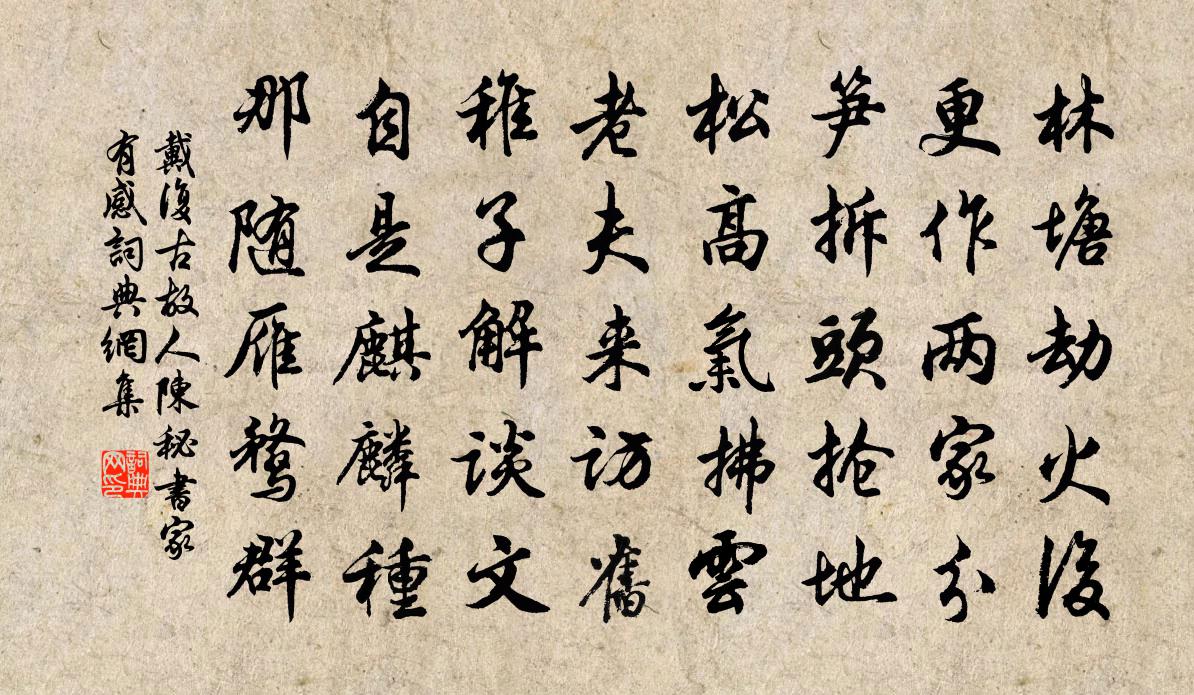 林塘劫火後
更作两家分
笋拆頭搶地
松高氣拂雲
老夫来訪舊
稚子解談文
自是麒麟種
那随雁鶩群
戴復古故人陳秘書家
有感詞典網集
詞典
网印